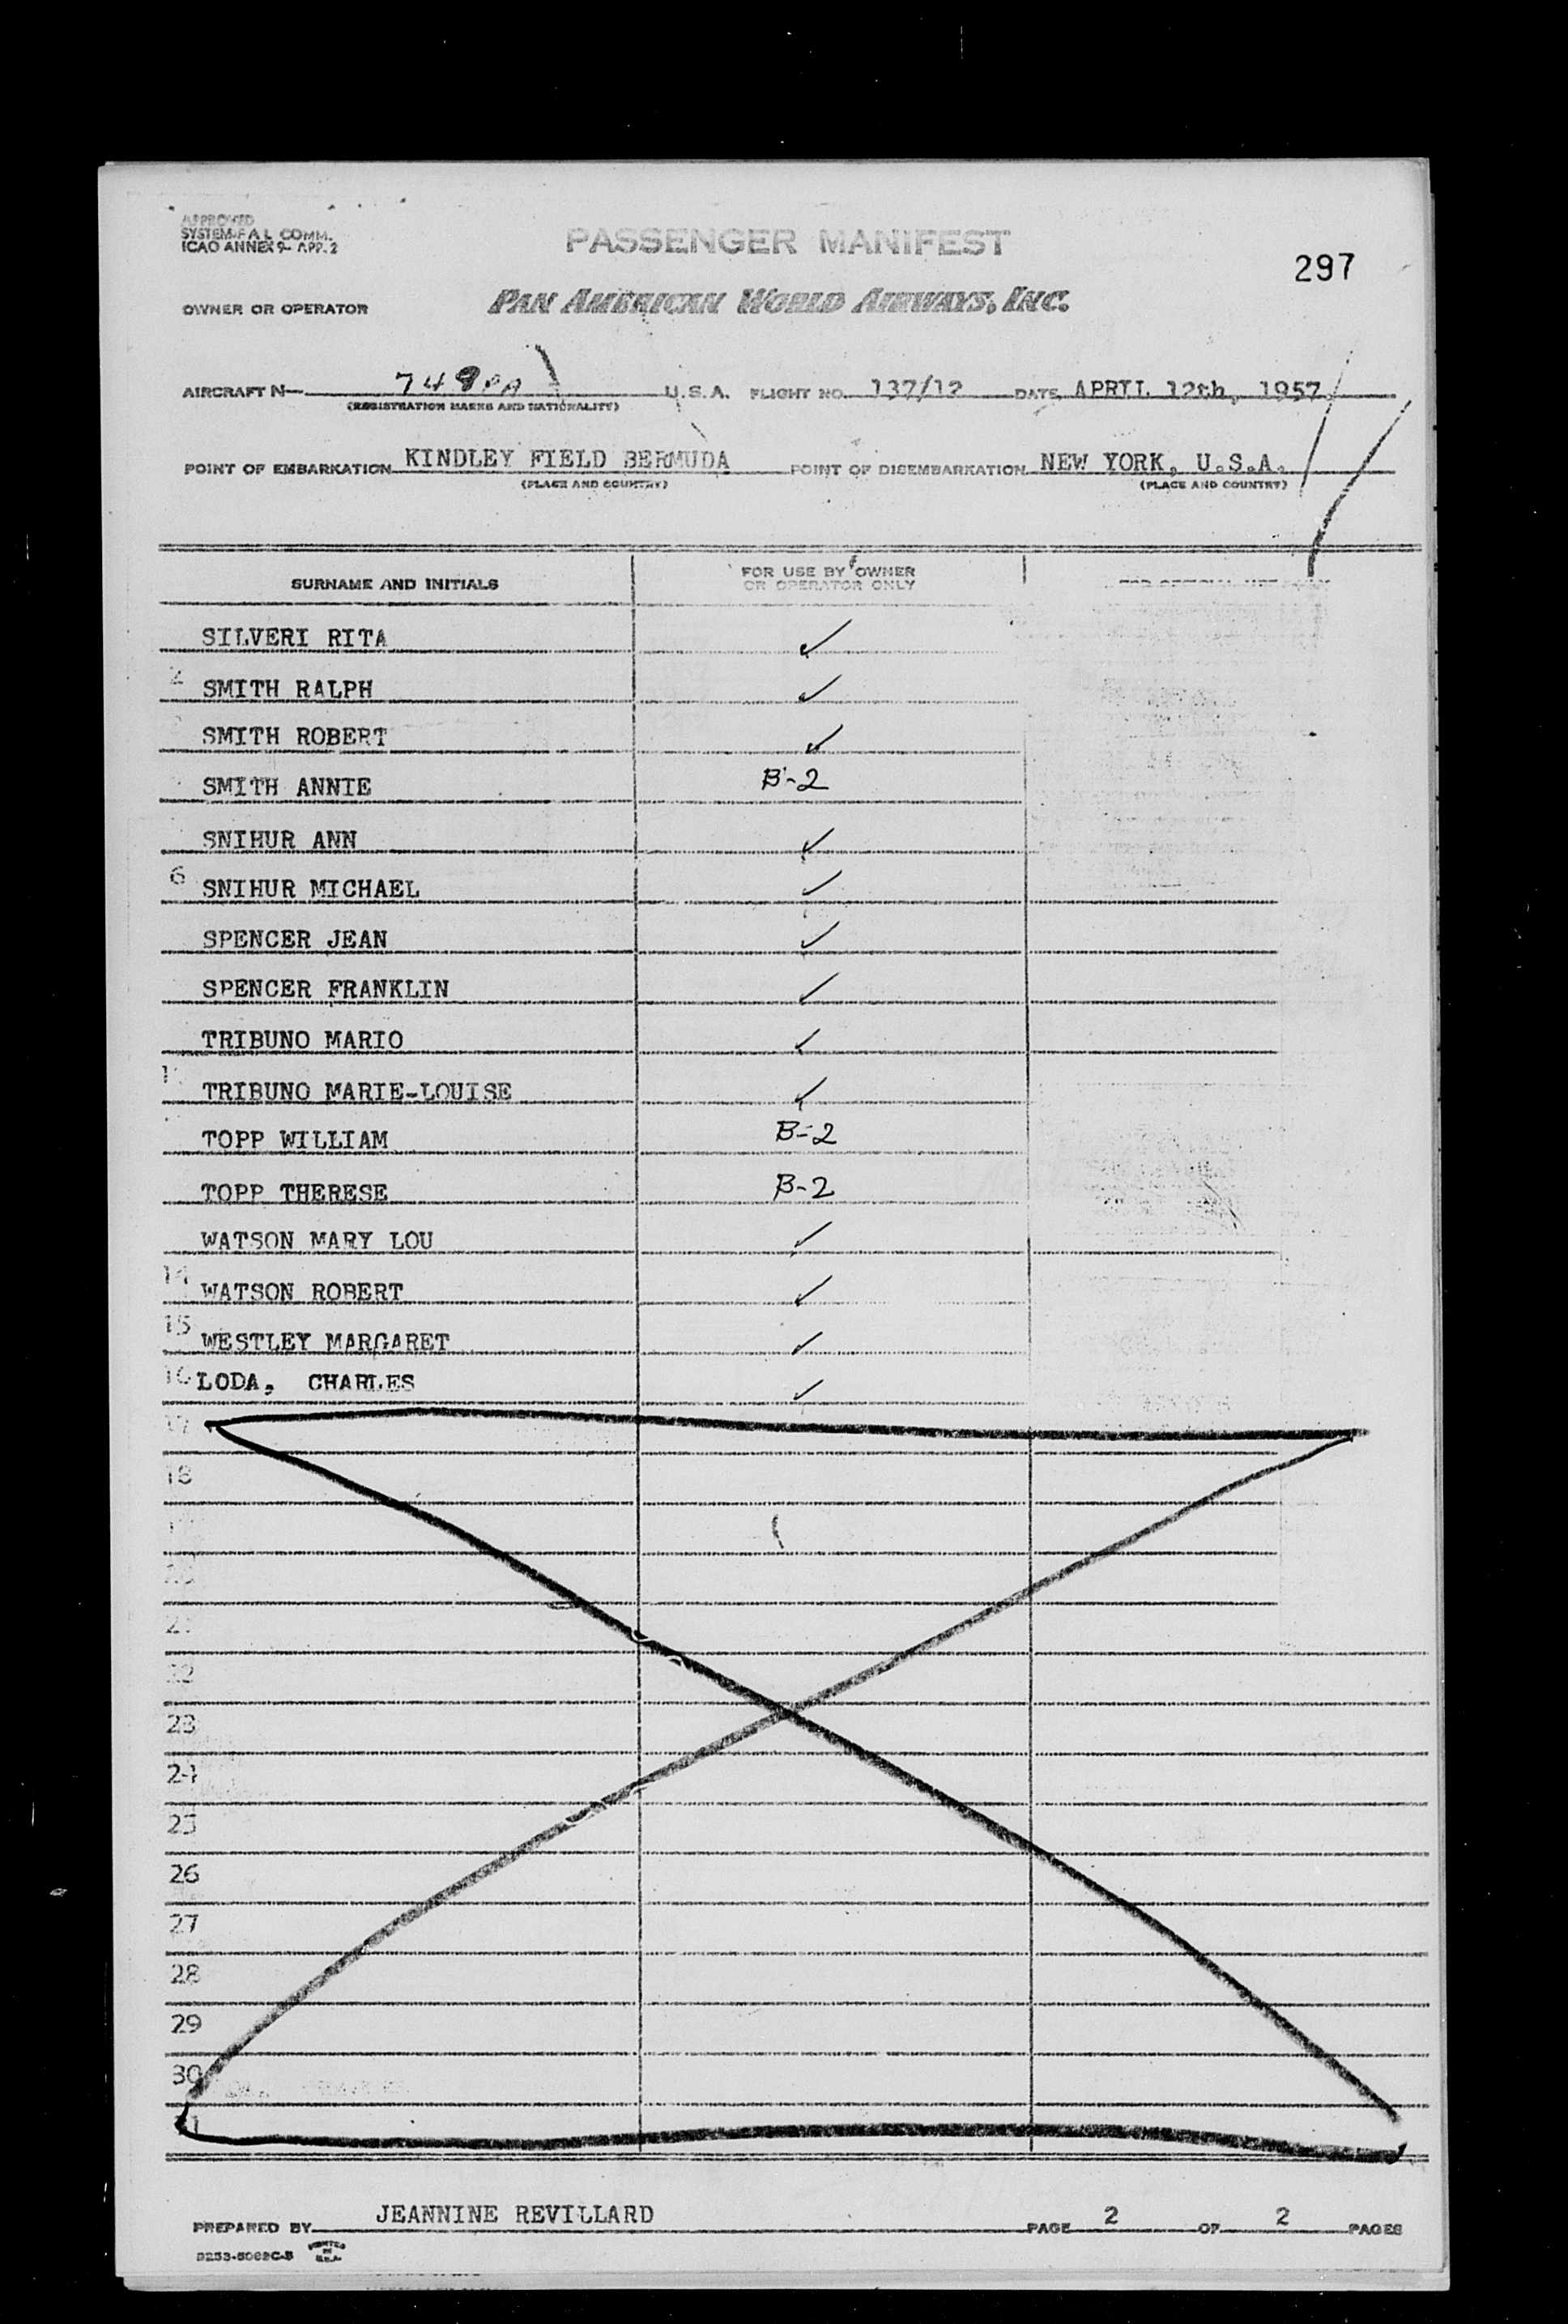 APPROVED
SYSTEM-F A L COMM.
ICAO ANNEX 9- APP. 2
PASSENGER MANIFEST
297
OWNER OR OPERATOR PAN AMERICAN WORLD AIRWAYS, INC.
AIRCRAFT N- 749PA U.S.A. FLIGHT NO. 137/12 DATE APRIL 12th, 1957
(REGISTRATION MARKS AND NATIONALITY)
POINT OF EMBARKATION KINDLEY FIELD BERMUDA POINT OF DISEMBARKATION NEW YORK, U.S.A.
(PLACE AND COUNTRY) (PLACE AND COUNTRY)
SURNAME AND INITIALS FOR USE BY OWNER OR OPERATOR ONLY FOR OFFICIAL USE ONLY
SILVERI RITA ✓
2 SMITH RALPH ✓
SMITH ROBERT ✓
SMITH ANNIE B-2
SNIHUR ANN ✓
6 SNIHUR MICHAEL ✓
SPENCER JEAN ✓
SPENCER FRANKLIN ✓
TRIBUNO MARIO ✓
TRIBUNO MARIE-LOUISE ✓
TOPP WILLIAM B-2
TOPP THERESE B-2
WATSON MARY LOU ✓
14 WATSON ROBERT ✓
15 WESTLEY MARGARET ✓
16 LODA, CHARLES ✓
17
18
21
22
23
24
25
26
27
28
29
30
PREPARED BY JEANNINE REVILLARD PAGE 2 OF 2 PAGES
PRINTED IN U.S.A.